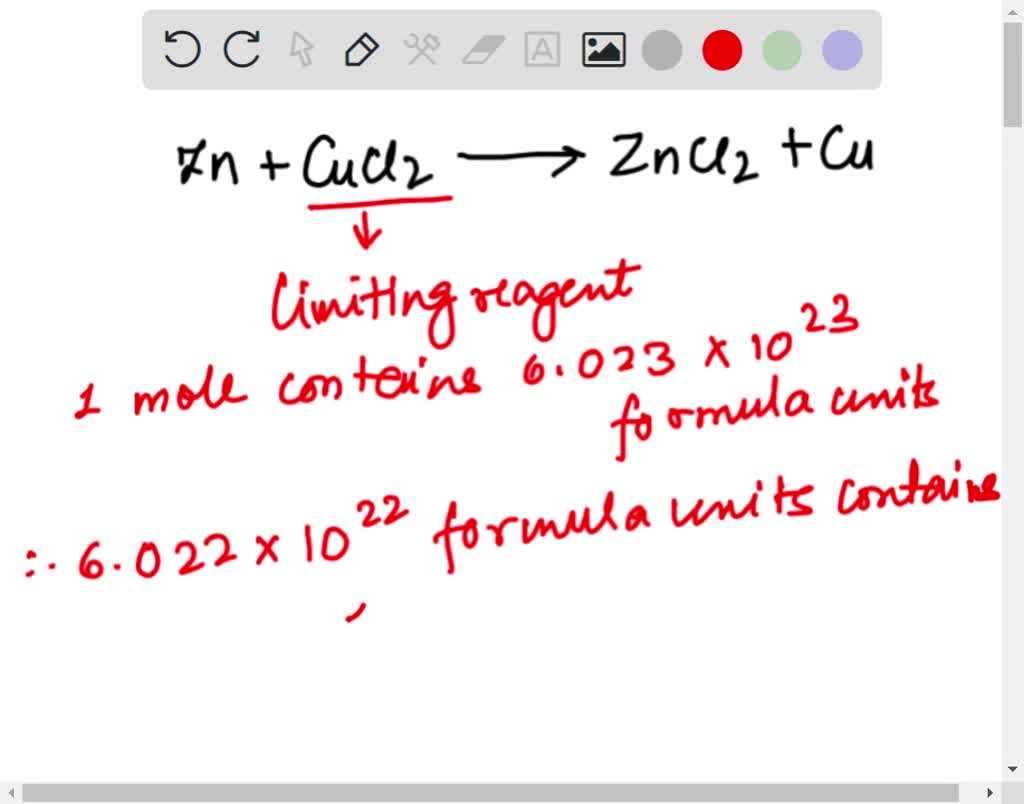 Zn + CuCl2 → ZnCl2 + Cu
Limiting reagent
1 mole contains 6.023 × 10^23
formula units
∴ 6.022 × 10^22 formula units contains